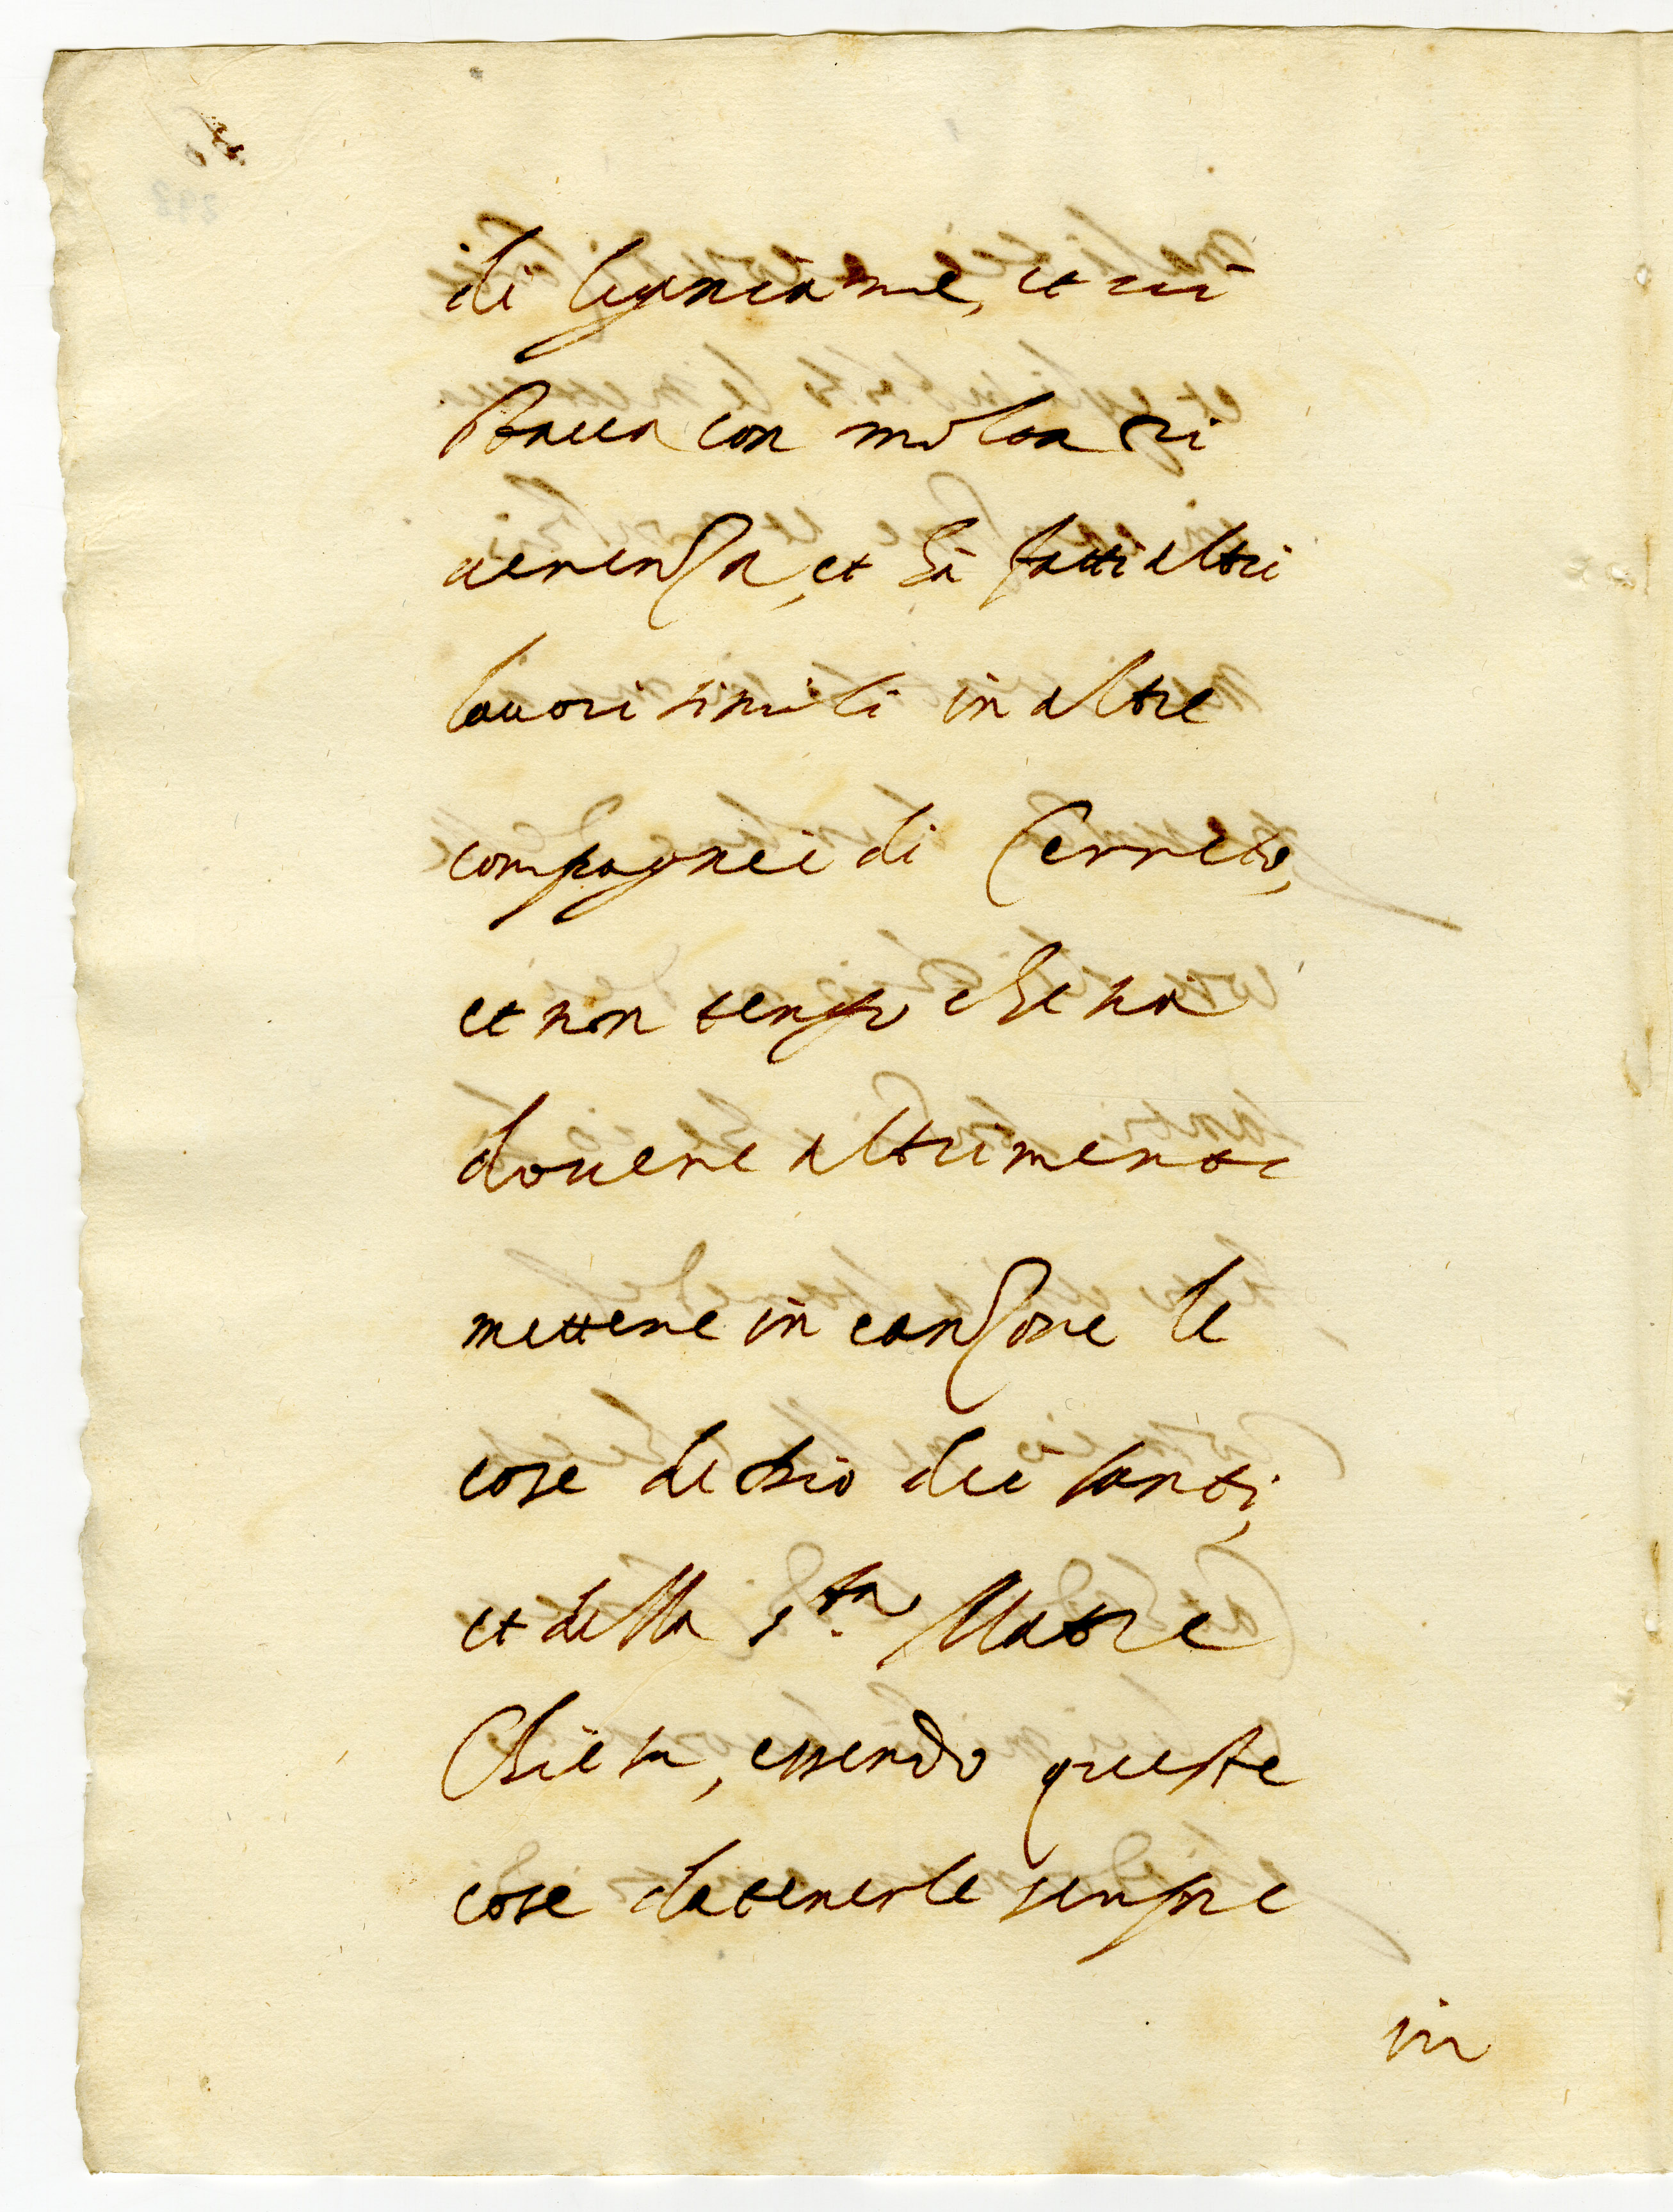 di legniame, et ivi
stava con molta ri
verenza, et hà fatti altri
lavori simili in altre
compagnie di Cerreto,
et non tengo che no
dovere altrimenti
mettere in canzone le
cose de Dio dei santi,
et della s.ta Matre
Chiesa, essendo queste
cose da tenerle sempre
in